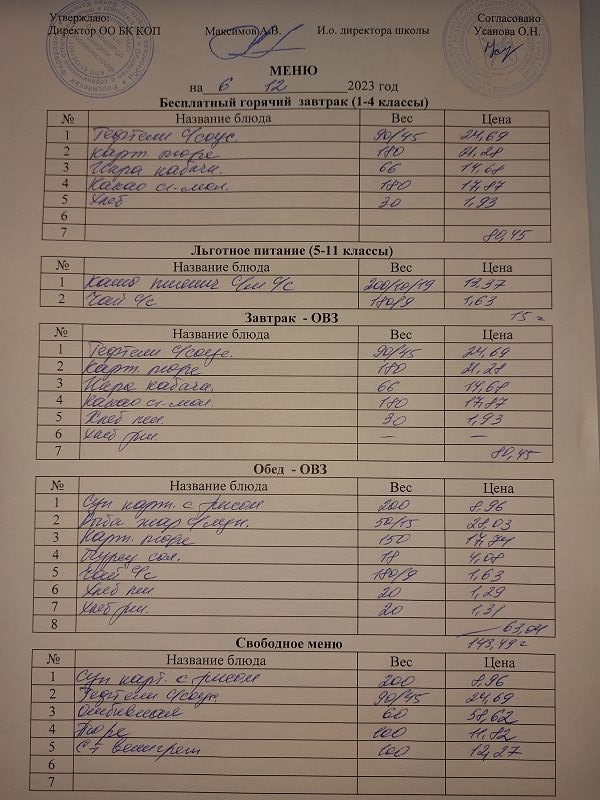 Утверждаю: Согласовано
Директор ОО БК КОП Максимов А.В. И.о. директора школы Усанова О.Н.
МЕНЮ
на 6 12 2023 год
Бесплатный горячий завтрак (1-4 классы)
№ Название блюда Вес Цена
1 Тефтели с/соус. 90/45 24,69
2 Карт. пюре 180 21,28
3 Икра кабачк. 66 14,68
4 Какао сг. мол. 180 17,87
5 Хлеб 30 1,93
6
7 80,45
Льготное питание (5-11 классы)
№ Название блюда Вес Цена
1 Каша пшенич с/м с/с 200/10/19 13,37
2 Чай с/с 180/9 1,63
15
Завтрак - ОВЗ
№ Название блюда Вес Цена
1 Тефтели с/соус. 90/45 24,69
2 Карт. пюре 180 21,28
3 Икра кабачк. 66 14,68
4 Какао сг. мол. 180 17,87
5 Хлеб пш. 30 1,93
6 Хлеб рж. — —
7 80,45
Обед - ОВЗ
№ Название блюда Вес Цена
1 Суп карт. с рисом 200 8,96
2 Рыба жар 50/15 28,03
3 Карт. пюре 150 17,74
4 Огурец сол. 18 4,08
5 Чай с/с 180/9 1,63
6 Хлеб пш. 20 1,29
7 Хлеб рж. 20 1,31
8 63,04
143,49
Свободное меню
№ Название блюда Вес Цена
1 Суп карт. с рисом 200 8,96
2 Тефтели с/соус. 90/45 24,69
3 Отбивная 60 58,62
4 Пюре 100 11,82
5 С-т винегрет 100 12,27
6
7